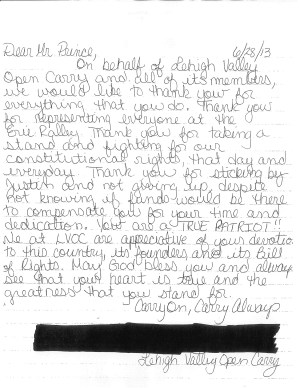 Dear Mr. Prince, 6/28/13
On behalf of Lehigh Valley
Open Carry and all of its members,
we would like to thank you for
everything that you do. Thank you
for representing everyone at the
Erie Ralley. Thank you for taking a
stand and fighting for our
constitutional rights, that day and
everyday. Thank you for sticking by
Justin and not giving up, despite
not knowing if funds would be there
to compensate you for your time and
dedication. You are a TRUE PATRIOT!!
We at LVOC are appreciative of your devotion
to this country, its founders and its Bill
of Rights. May God bless you and always
see that your heart is true and the
greatness that you stand for.
Carry On, Carry Always
Lehigh Valley Open Carry